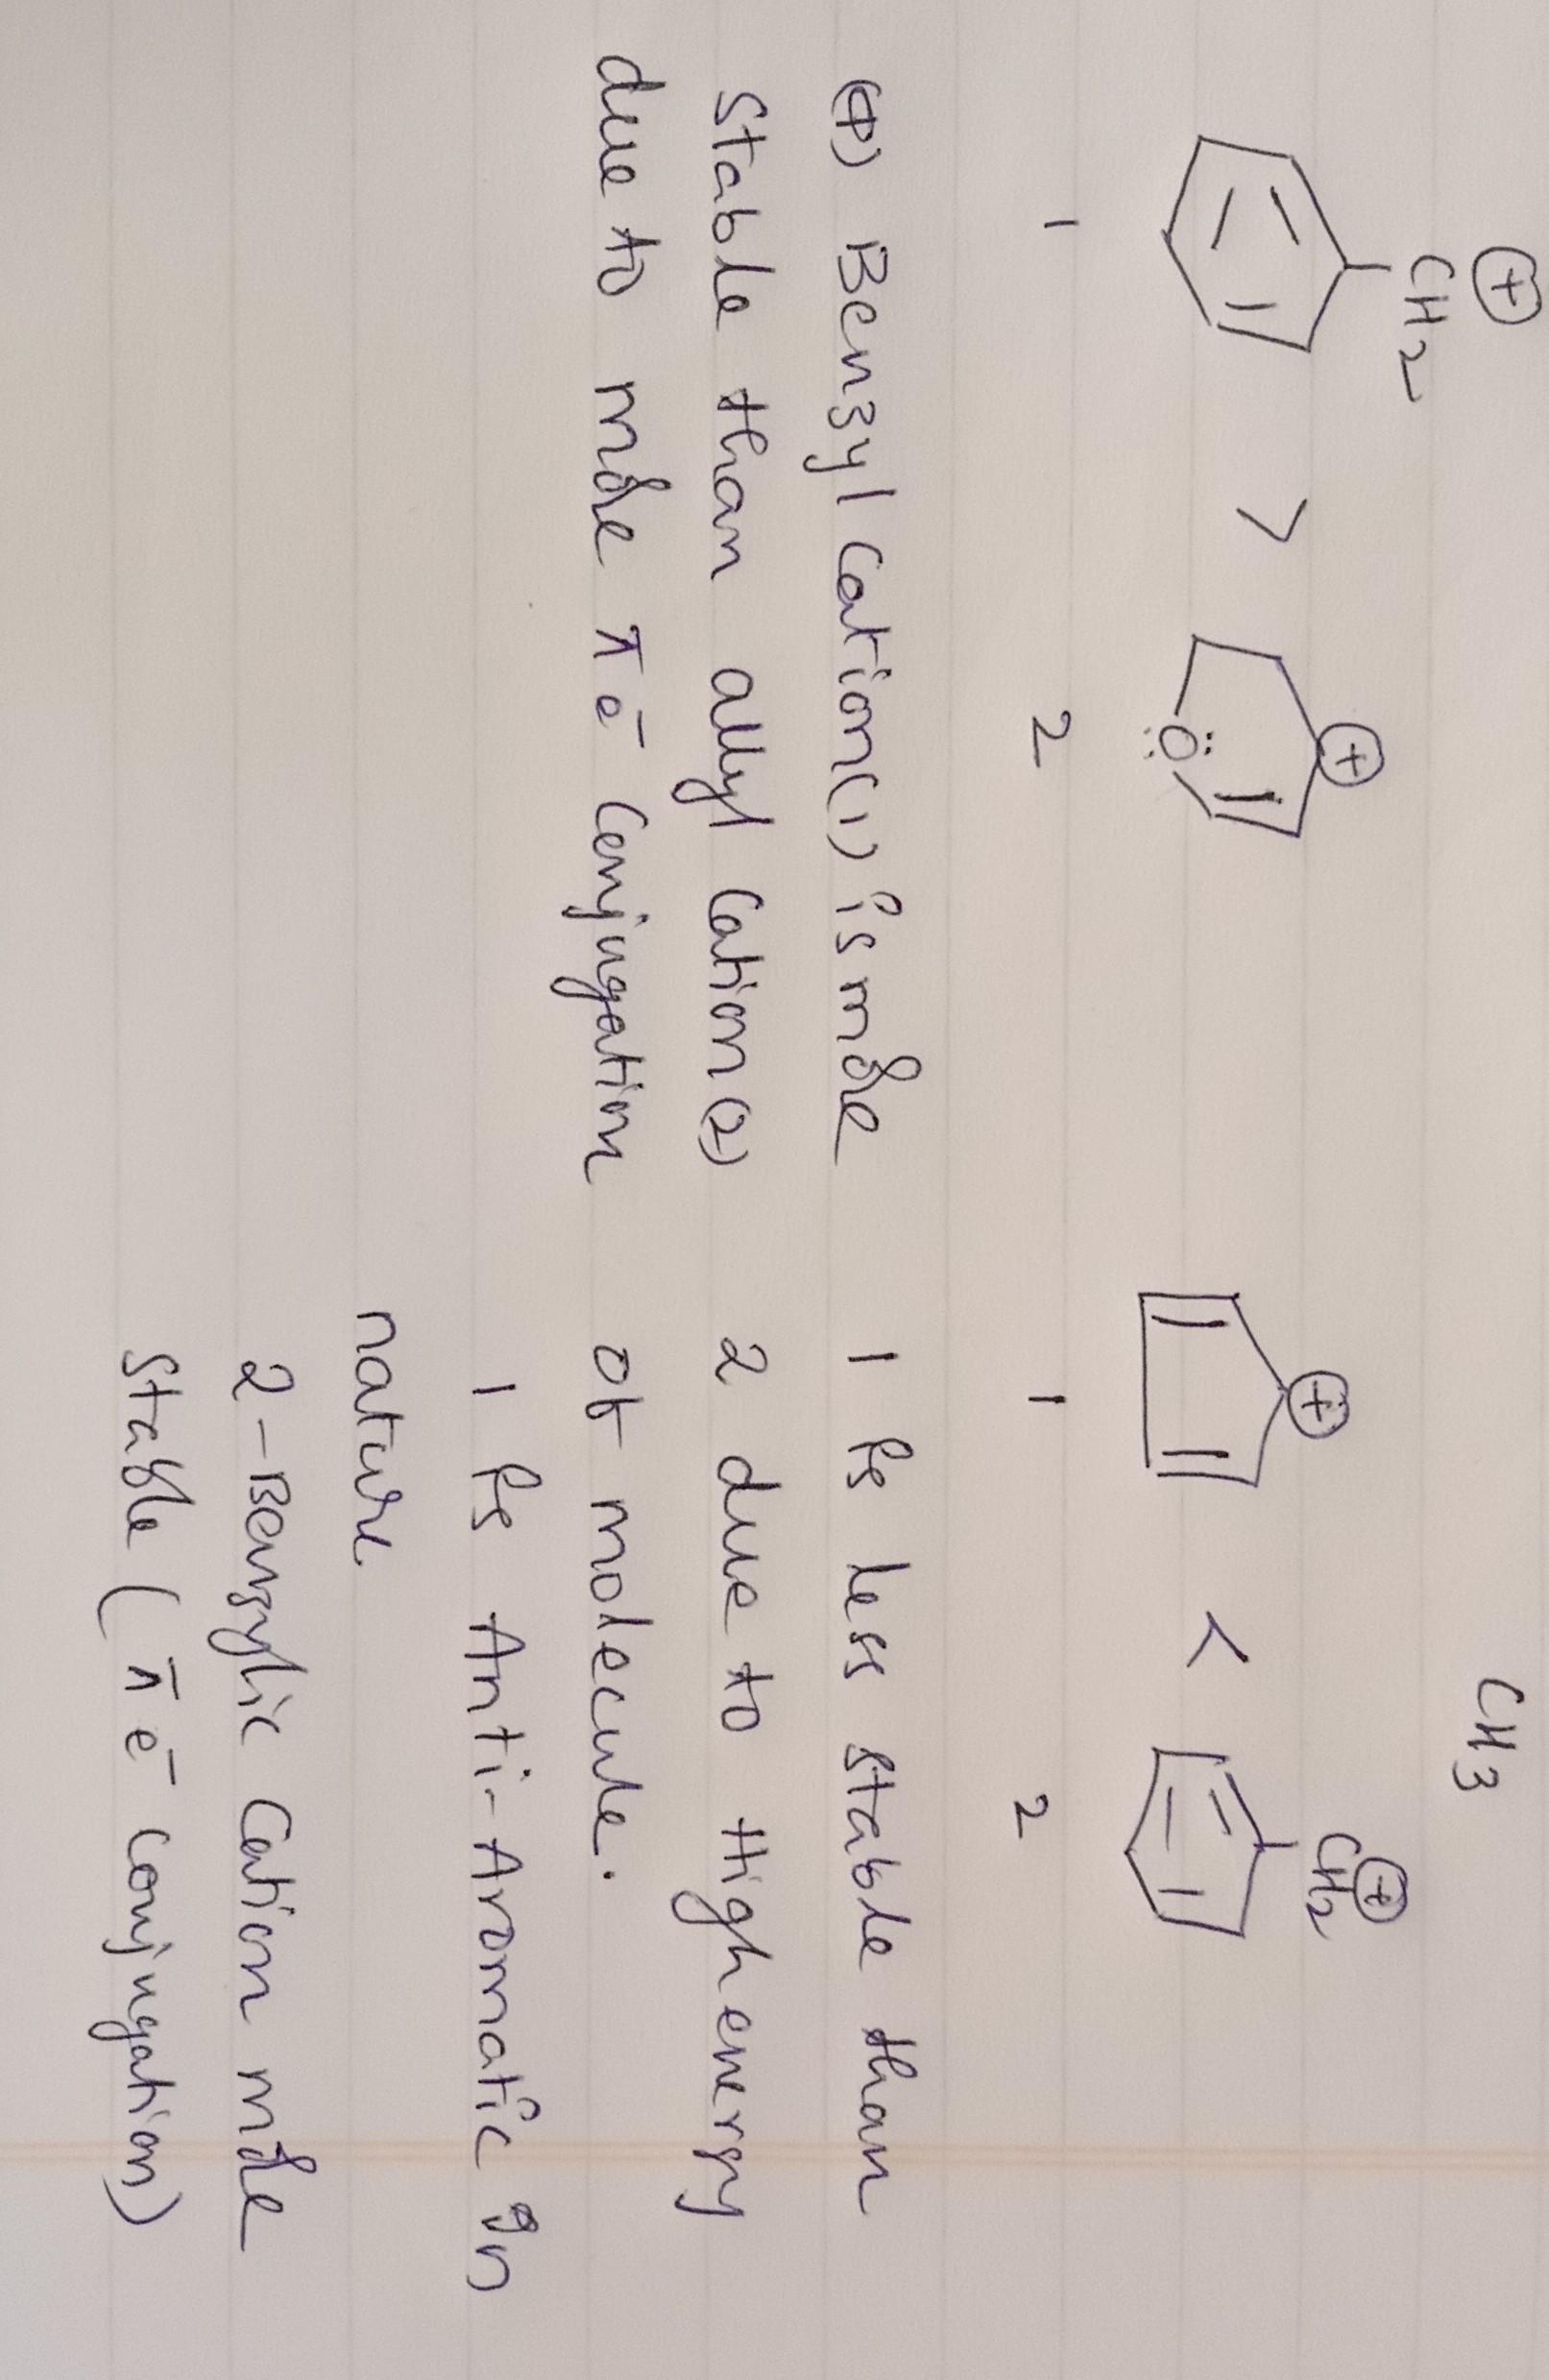 CH3
⊕
CH2
>
⊕
:Ö
1
2
⊕
<
⊕
CH2
1
2
(+) Benzyl Cation(1) is more
Stable than allyl Cation (2)
due to more π e⁻ Conjugation
1 is less stable than
2 due to High energy
of molecule.
1 is Anti-Aromatic In
nature
2-Benzylic Cation more
Stable ( π e⁻ conjugation)